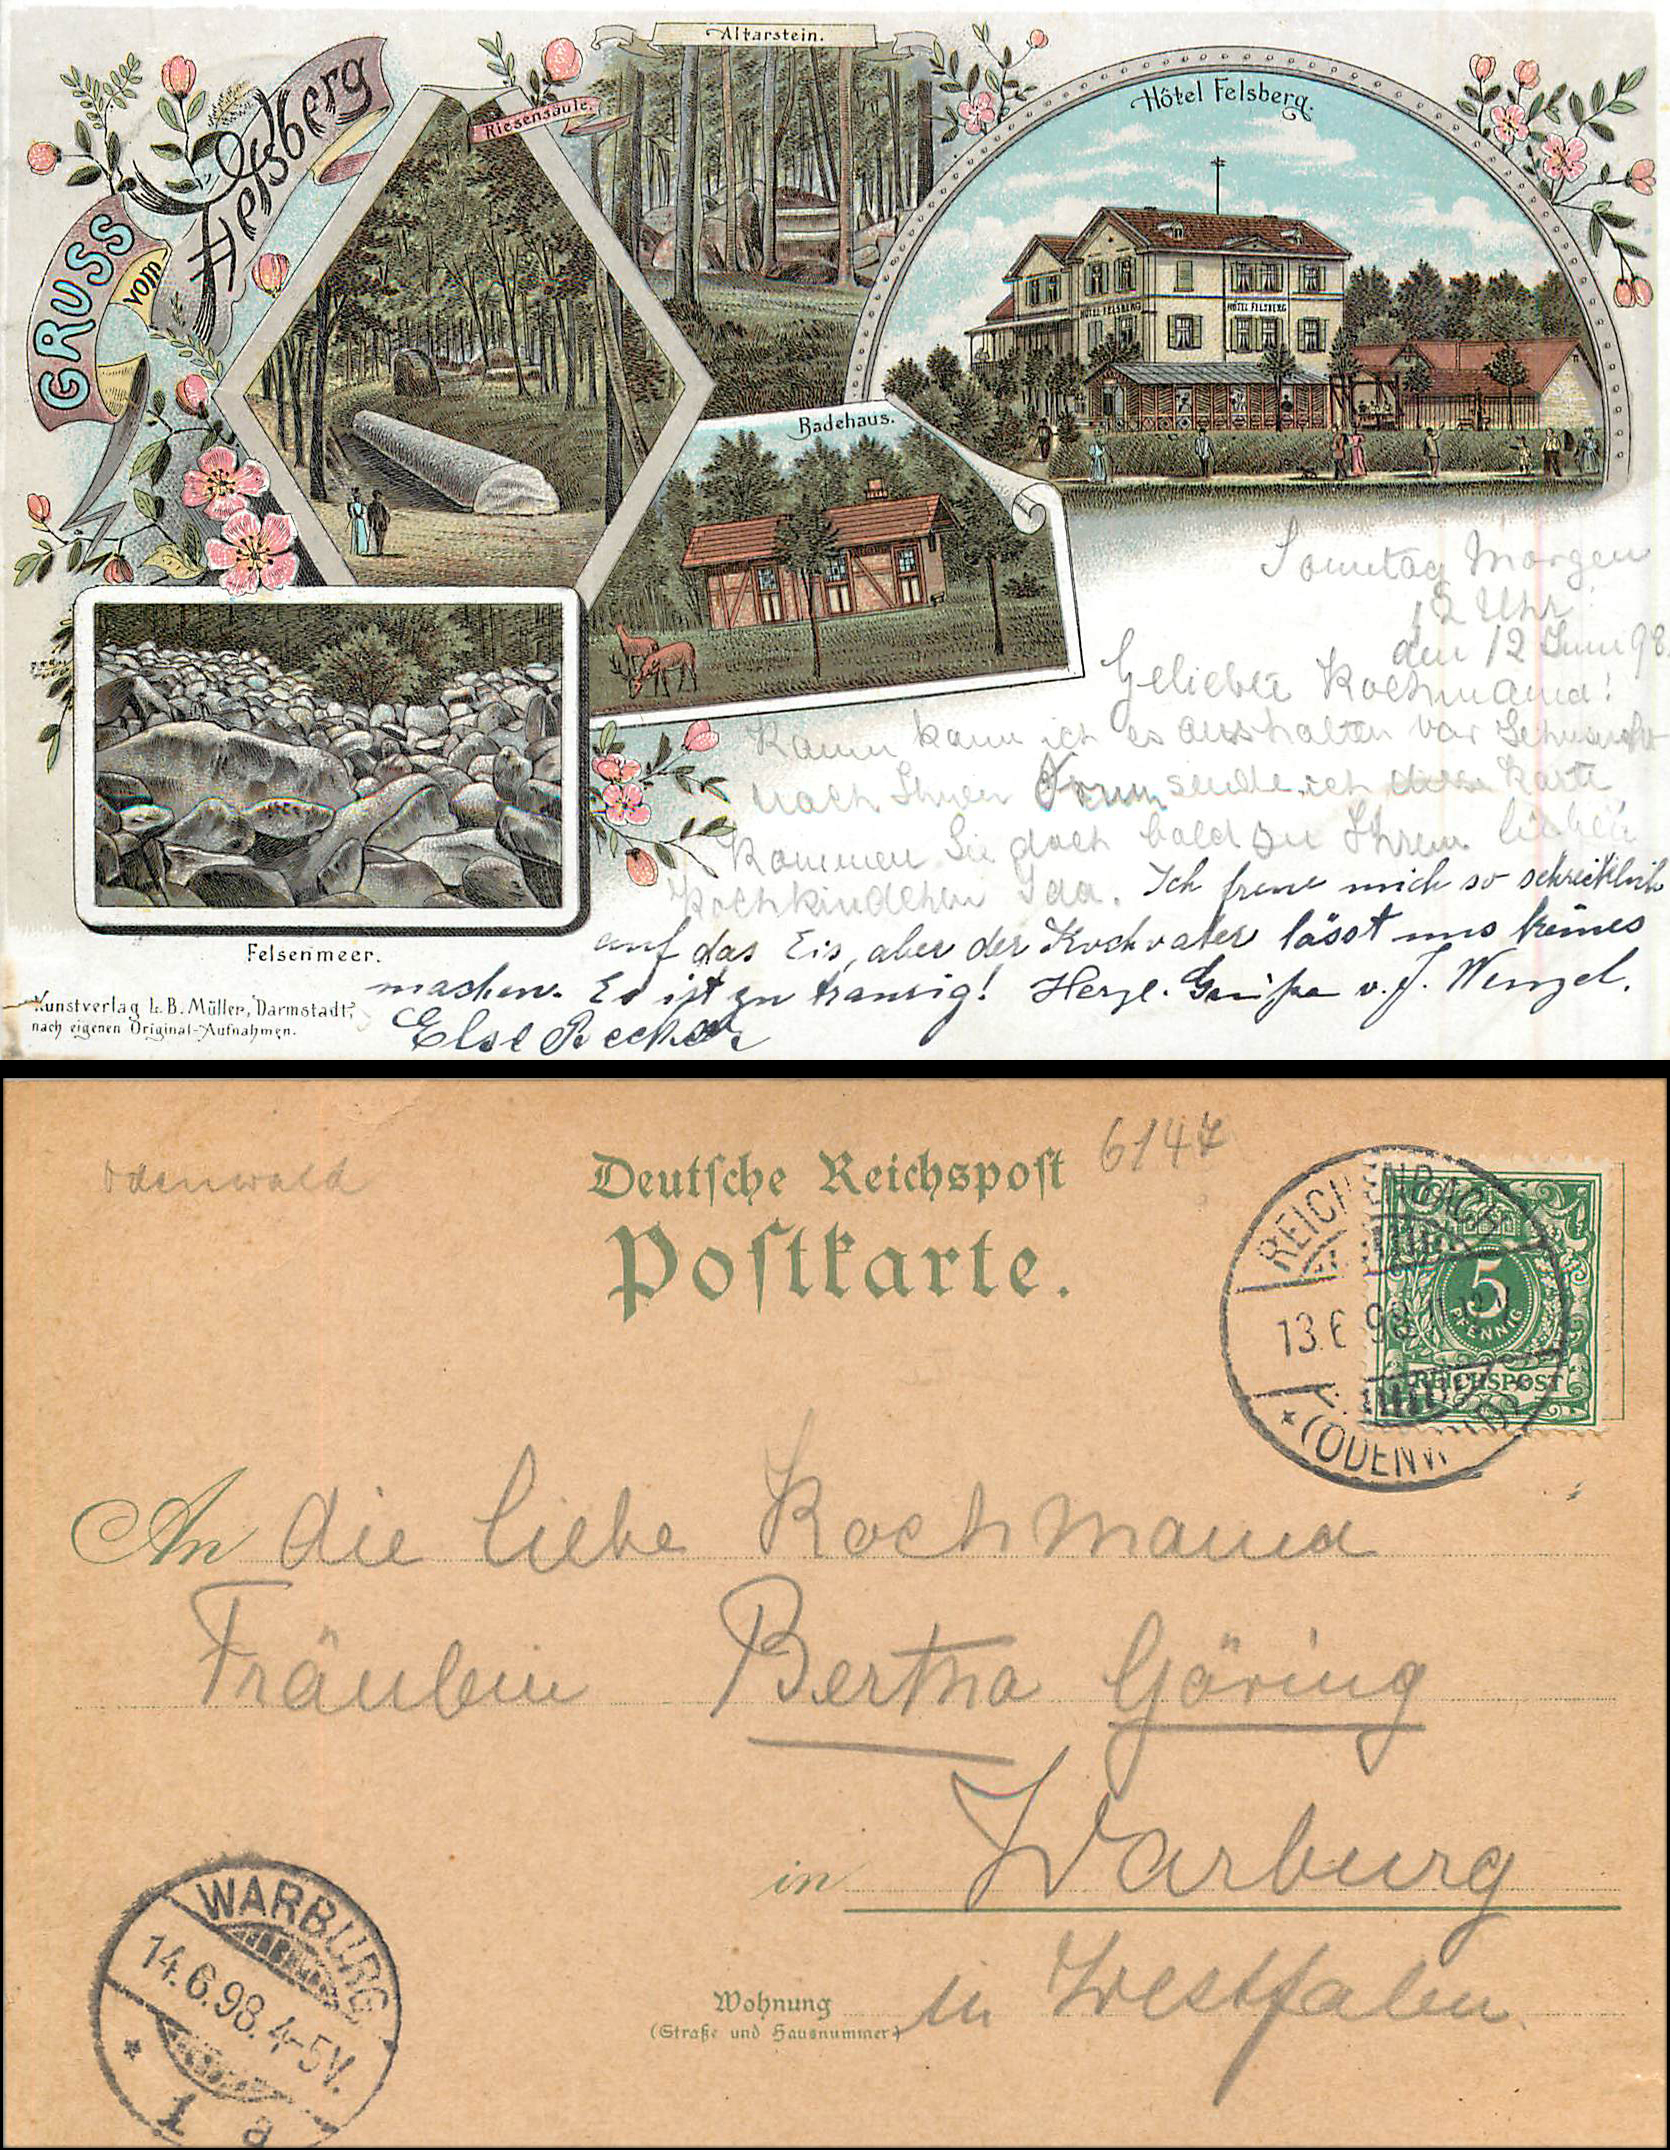 GRUSS
vom
Felsberg
Riesensäule.
Altarstein.
Hôtel Felsberg.
HÔTEL FELSBERG
HÔTEL FELSBERG
Badehaus.
Felsenmeer.
Kunstverlag L. B. Müller, Darmstadt,
nach eigenen Original-Aufnahmen.
Sonntag Morgen
12 Uhr
den 12 Juni 98.
Geliebte Kochmama!
Kaum kann ich es aushalten vor Sehnsucht
nach Ihnen Drum sende ich diese Karte
Kommen Sie doch bald zu Ihrem lieben
Kochkindchen Ida. Ich freue mich so schrecklich
auf das Eis, aber der Kochvater lässt uns keines
machen. Es ist zu traurig! Herzl. Grüße v. J. Wenzel.
Else Becker
Odenwald
6147
Deutsche Reichspost
Postkarte.
REICHENBACH
13.6.98
(ODENWALD)
5
PFENNIG
REICHSPOST
An die liebe Kochmama
Fräulein Bertha Göring
in Warburg
Wohnung in Westfalen
(Straße und Hausnummer)
WARBURG
14.6.98. 4-5V.
1 a